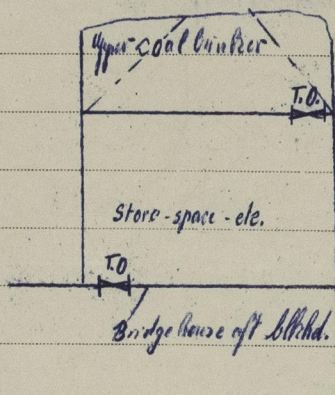 Upper coal bunker
T.O.
Store-space-etc.
T.O
Bridge house aft blkhd.